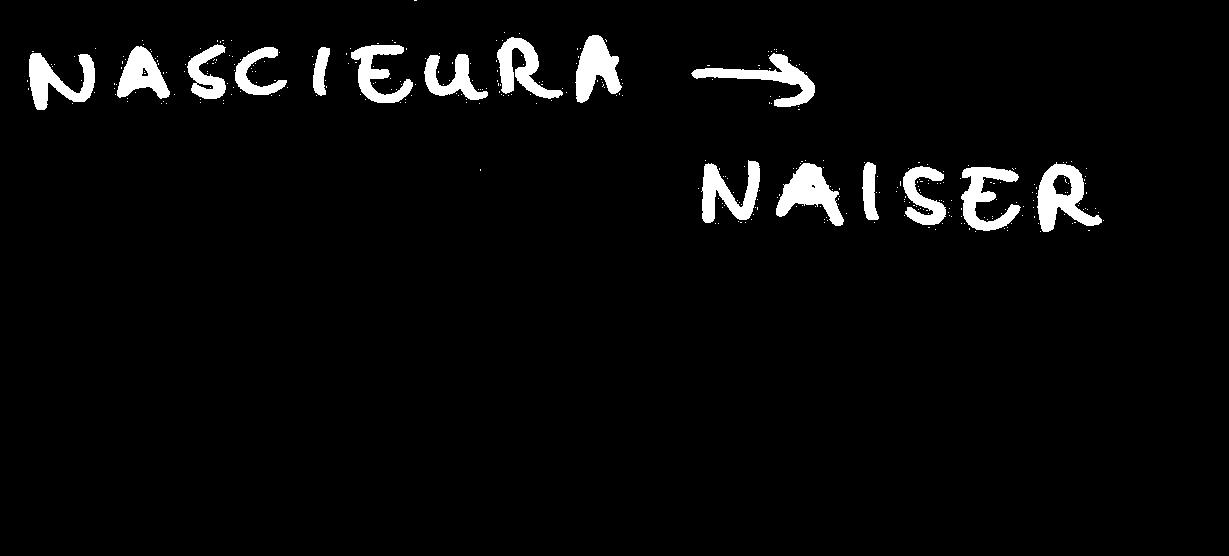 NASCIEURA →
NAISER